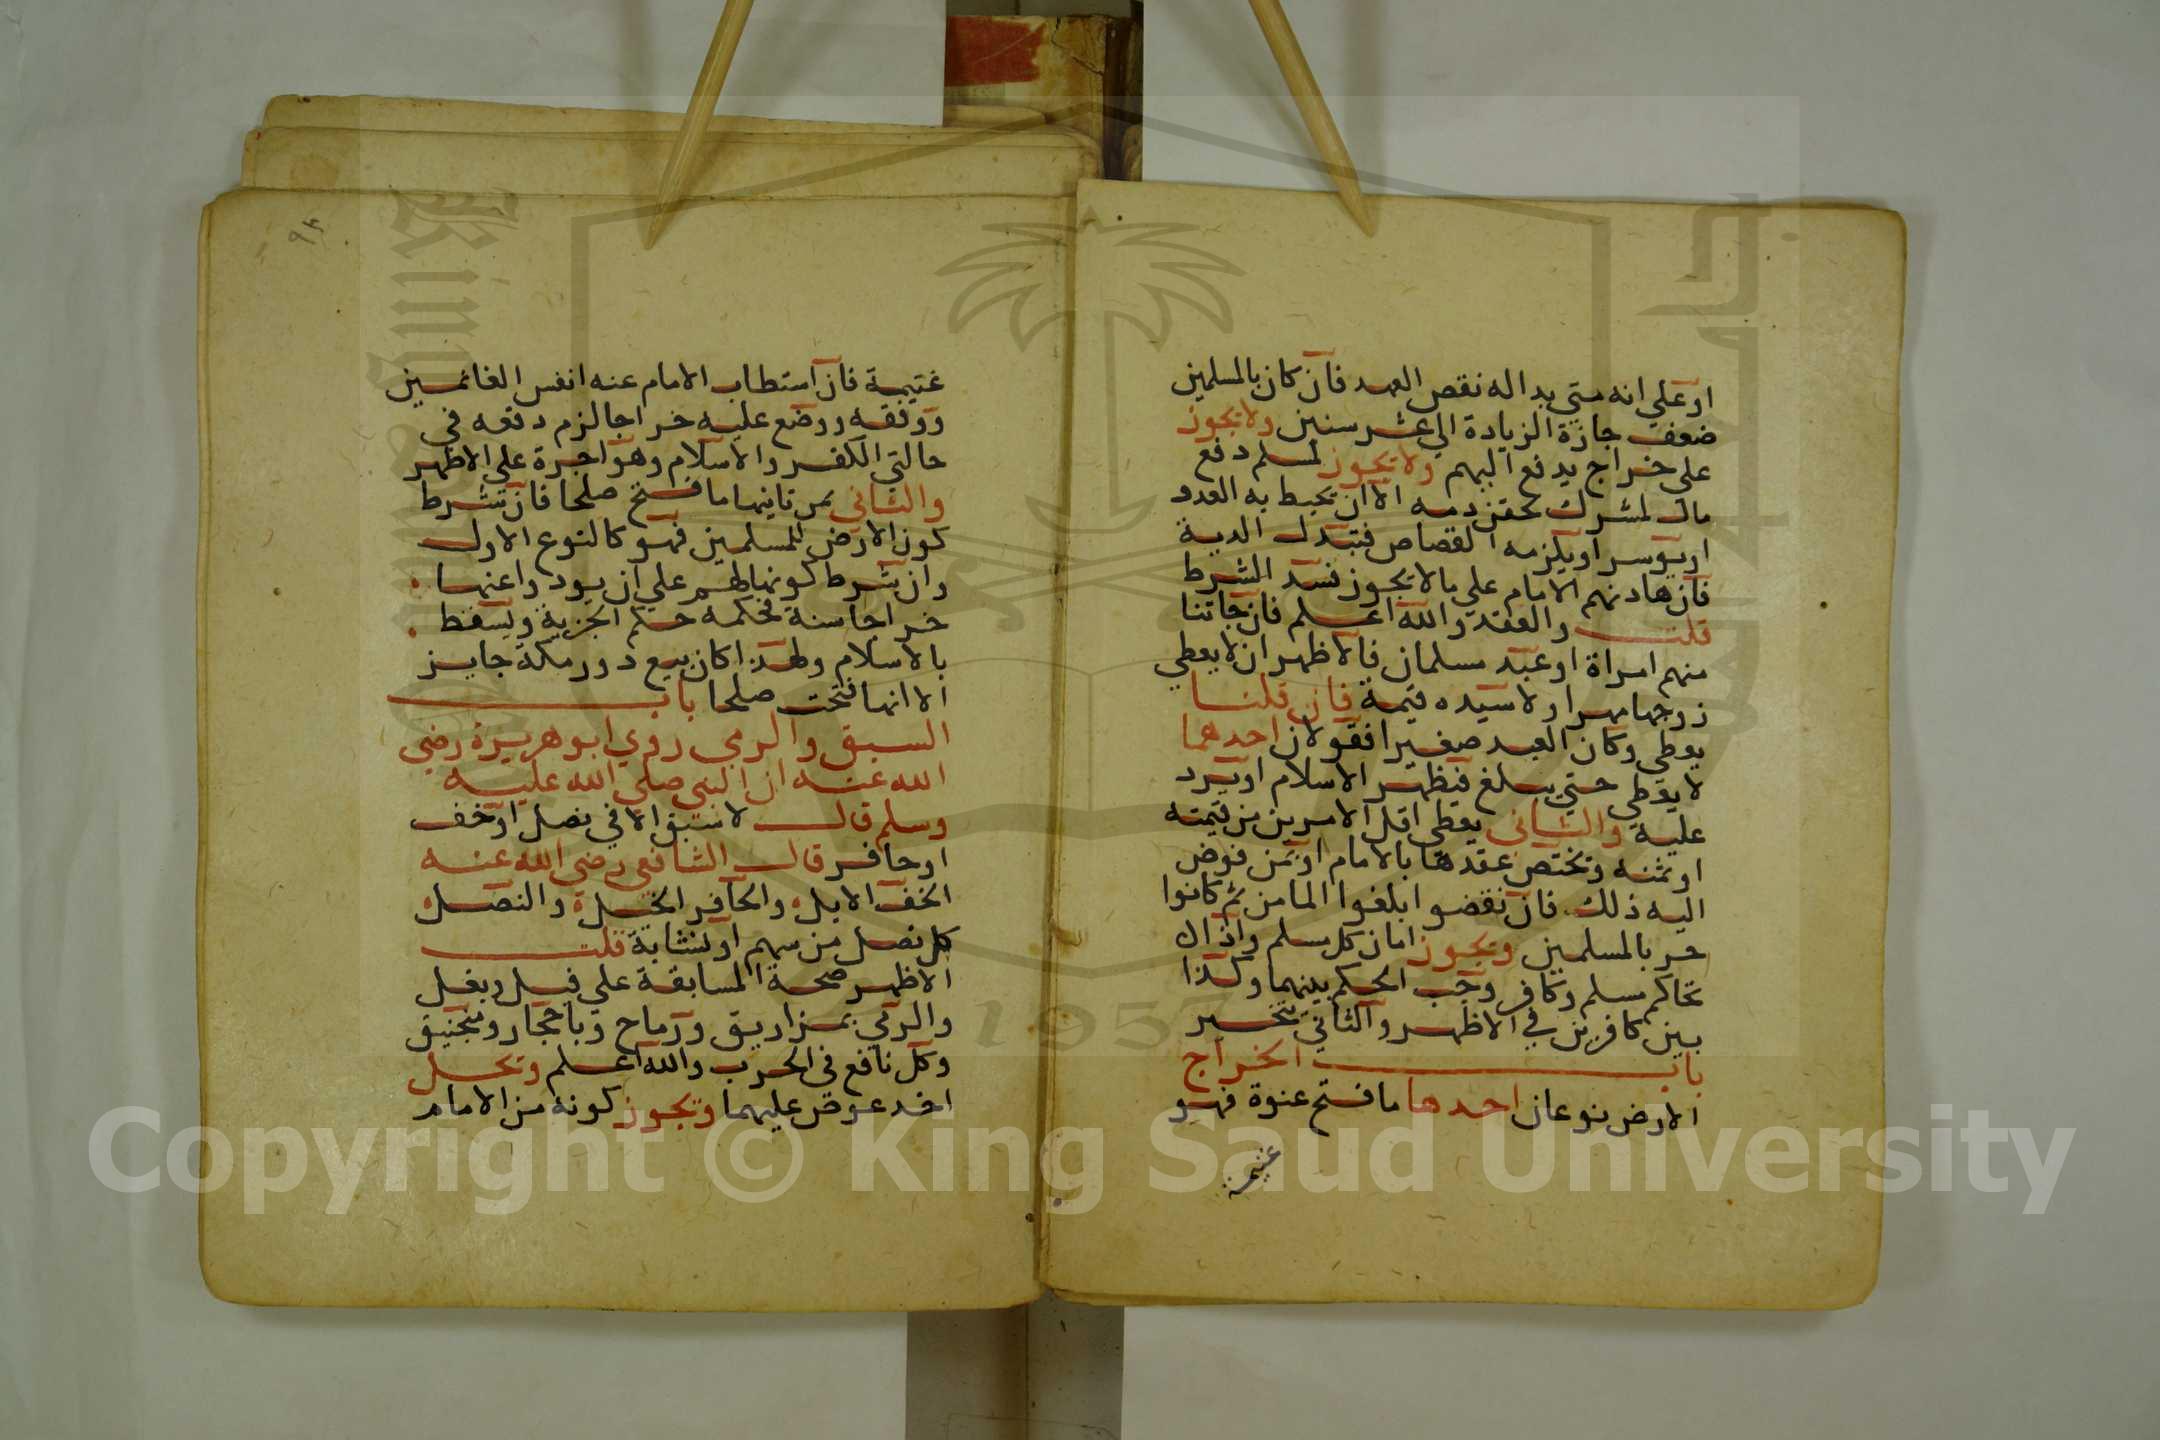 او علي انه متي بدا له نقص العهد فان كان بالمسلمين
ضعف جازة الزيادة الي عشر سنين ولا يجوز
علي خراج يدفع اليهم ولا يجوز لمسلم دفع
مال لمشرك لحقن دمه الا ان يحيط به العدو
او يوسر او يلزمه القصاص فتبدل الدية
فان هادنهم الامام علي ما لا يجوز فسد الشرط
قلت والعقد والله اعلم فان جاتنا
منهم امراة او عبد مسلمان فالاظهر ان لا يعطي
زوجها مهرا ولا سيده قيمة فان قلنا
يعطي وكان العبد صغيرا فقولان احدهما
لا يعطي حتي يبلغ فيظهر الاسلام او يرد
عليه والثاني يعطي اقل الامرين من قيمته
او ثمنه وتختص عقدها بالامام او بمن فوض
اليه ذلك فان نقضوا ابلغوا المامن ثم كانوا
حربا لمسلمين ويجوز امان كل مسلم واذا
تحاكم مسلم وكافر وجب الحكم بينهما وكذا
بين كافرين في الاظهر والثاني يتخير
باب الخراج
الارض نوعان احدها ما فتح عنوة فهو
غنيمة
٩٤
غنيمة فان استطاب الامام عنه انفس الغانمين
ووقفه ووضع عليه خراجا لزم دفعه في
حالتي الكفر والاسلام وهو اجرة علي الاظهر
والثاني ثمن ثانيها ما فتح صلحا فان شرط
كون الارض للمسلمين فهو كالنوع الاول
وان شرط كونها لهم علي ان يودوا عنها
خراجا سنة فحكمه حكم الجزية ويسقط
بالاسلام ولهذا كان بيع دور مكة جايز
الا انها فتحت صلحا باب
السبق والرمي روي ابو هريرة رضي
الله عنه ان النبي صلي الله عليه
وسلم قال لا سبق الا في نصل او خف
او حافر قال الشافعي رضي الله عنه
الخف الابل والحافر الخيل والنصل
كل نصل من سهم او نشابة قلت
الاظهر صحة المسابقة علي فيل وبغل
والرمي بمزاريق ورماح وباحجار ومنجنيق
وكل نافع في الحرب والله اعلم وتحل
اخد عوض عليهما ويجوز كونه من الامام
1957
Copyright © King Saud University